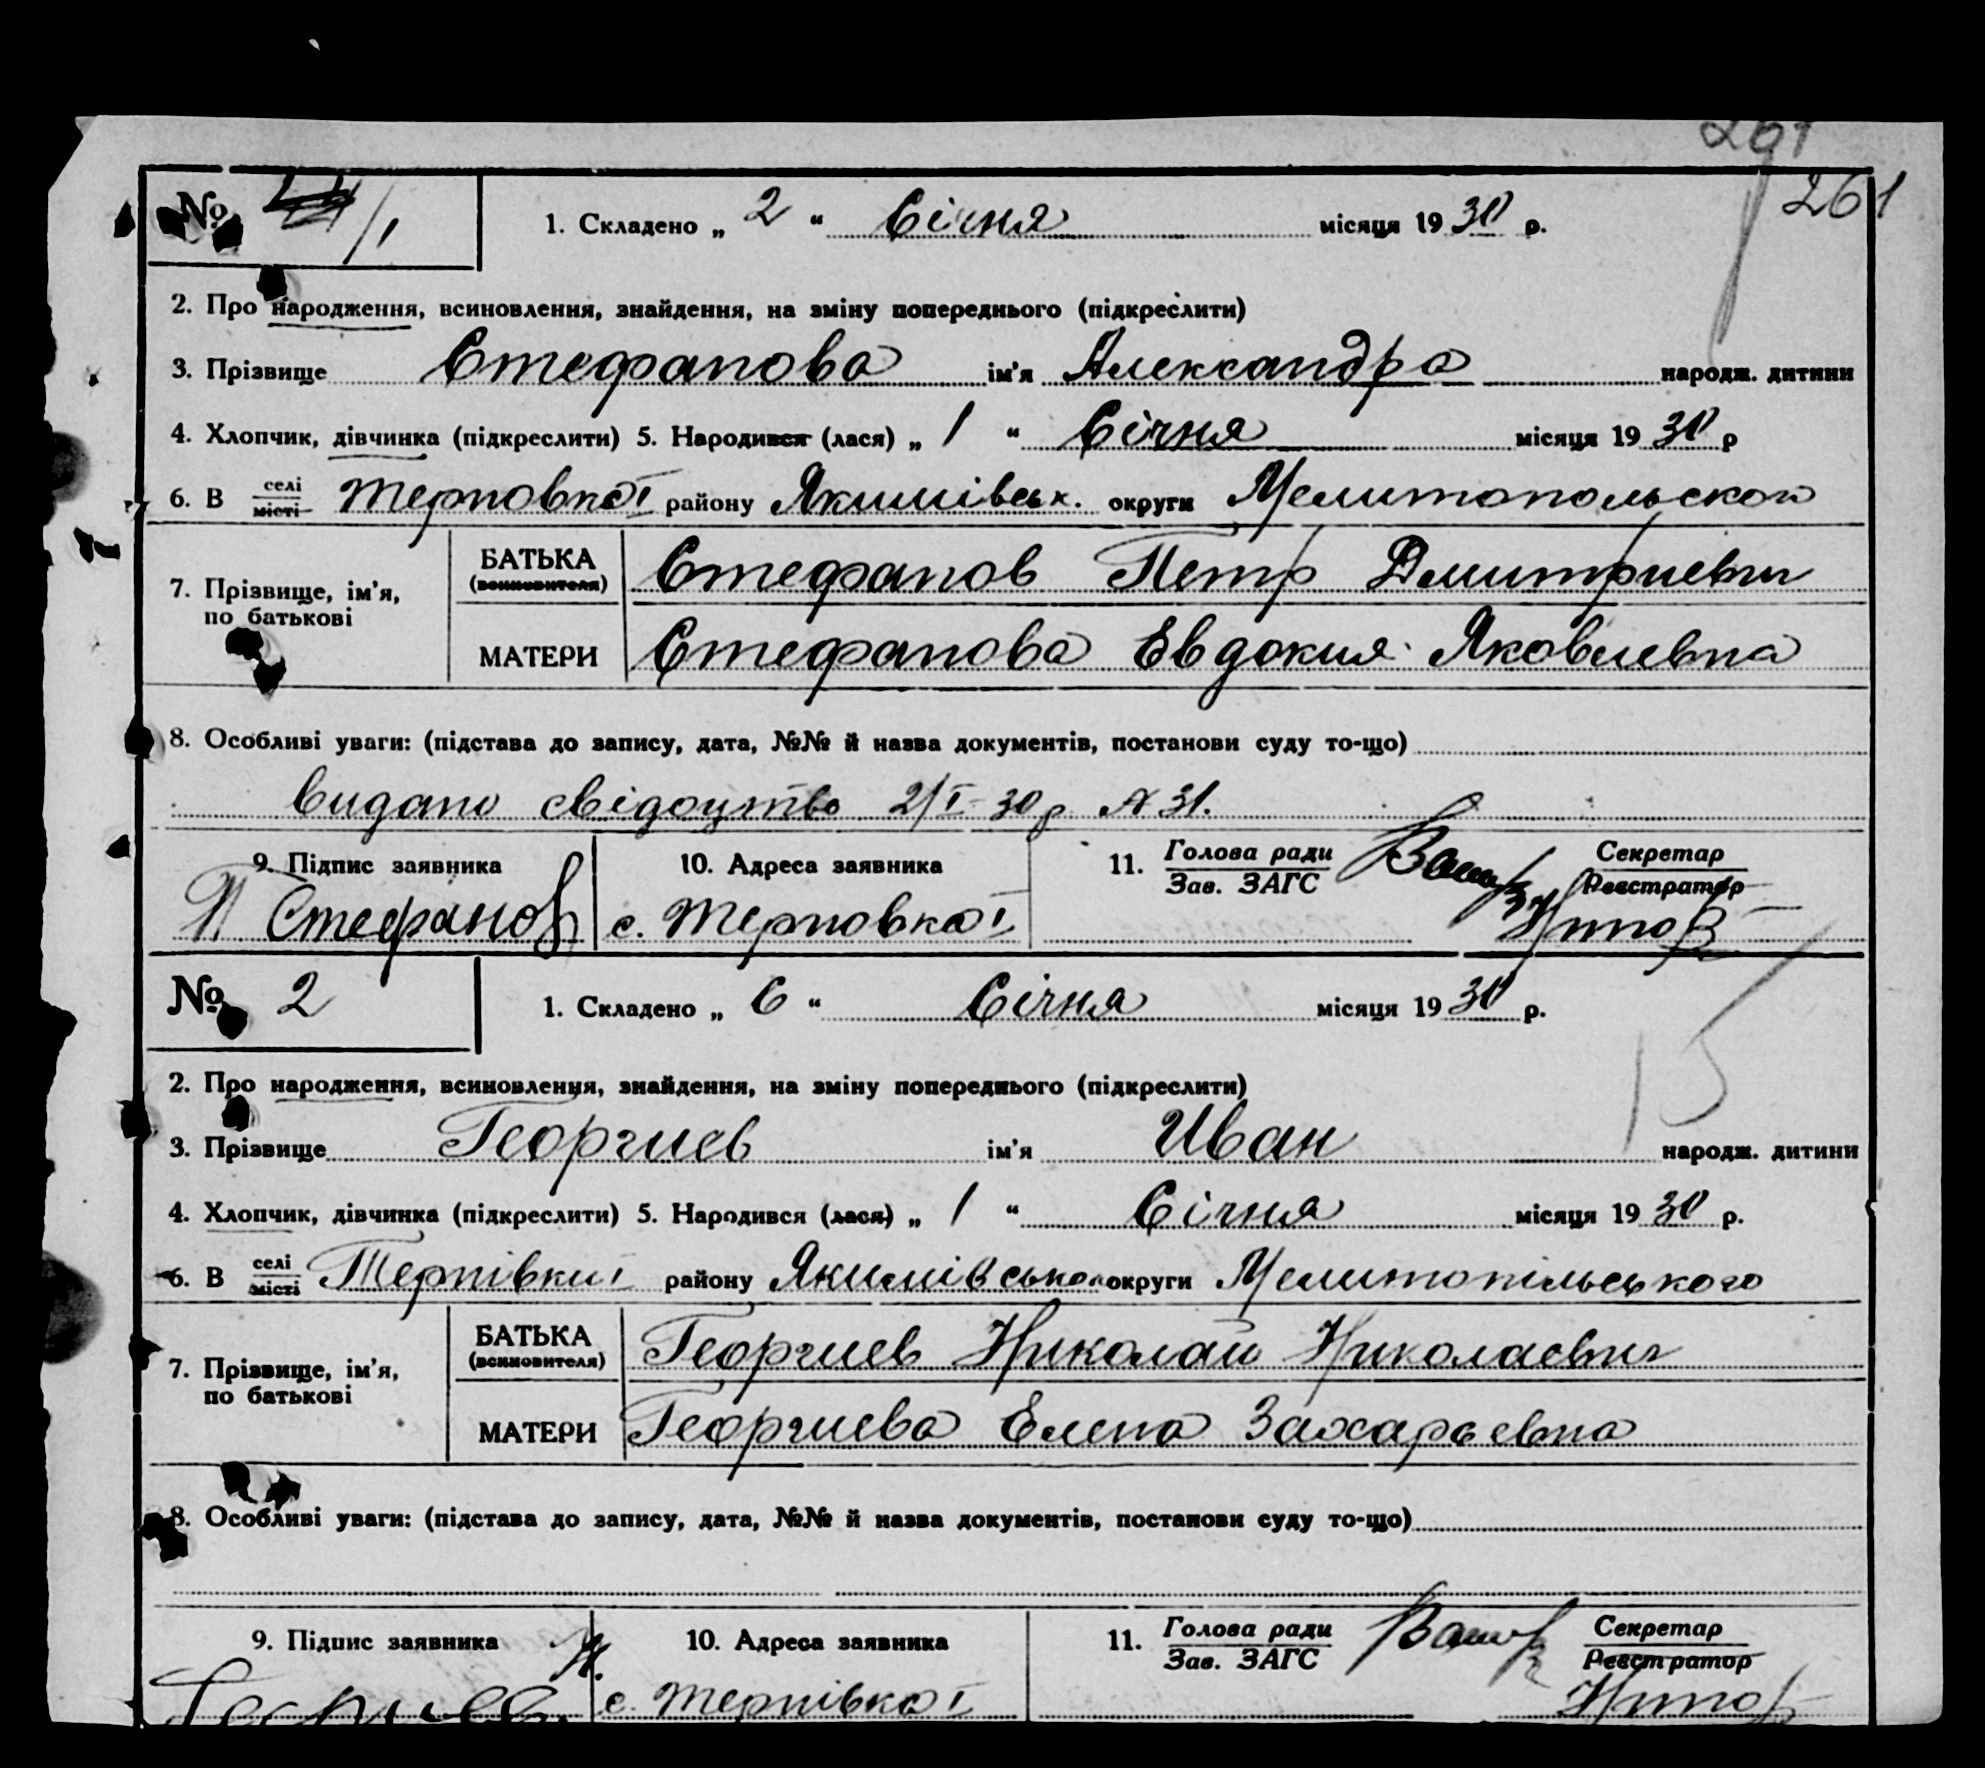 291
261
№ 1
1. Складено „ 2 “ Січня місяця 1930 р.
2. Про народження, всиновлення, знайдення, на зміну попереднього (підкреслити)
3. Прізвище Стефанова ім'я Александра народж. дитини
4. Хлопчик, дівчинка (підкреслити) 5. Народився (лася) „ 1 “ Січня місяця 1930 р
6. В селі місті Терновка I району Якимівськ. округи Мелитопольской
7. Прізвище, ім'я, по батькові
БАТЬКА (всиновителя) Стефанов Петр Дмитриевич
МАТЕРИ Стефанова Евдокия Яковлевна
8. Особливі уваги: (підстава до запису, дата, №№ й назва документів, постанови суду то-що)
Видано свідоцтво 2/I-30 р. № 31.
9. Підпис заявника 10. Адреса заявника 11. Голова ради Зав. ЗАГС Секретар Реєстратор
П Стефанов с. Терновка I
№ 2
1. Складено „ 6 “ Січня місяця 1930 р.
2. Про народження, всиновлення, знайдення, на зміну попереднього (підкреслити)
3. Прізвище Георгиев ім'я Иван народж. дитини
4. Хлопчик, дівчинка (підкреслити) 5. Народився (лася) „ 1 “ Січня місяця 1930 р.
6. В селі місті Тернівки I району Якимівського округи Мелитопільського
7. Прізвище, ім'я, по батькові
БАТЬКА (всиновителя) Георгиев Николай Николаевич
МАТЕРИ Георгиева Елена Захарьевна
8. Особливі уваги: (підстава до запису, дата, №№ й назва документів, постанови суду то-що)
9. Підпис заявника 10. Адреса заявника 11. Голова ради Зав. ЗАГС Секретар Реєстратор
Георгиев Н. с. Тернівка I